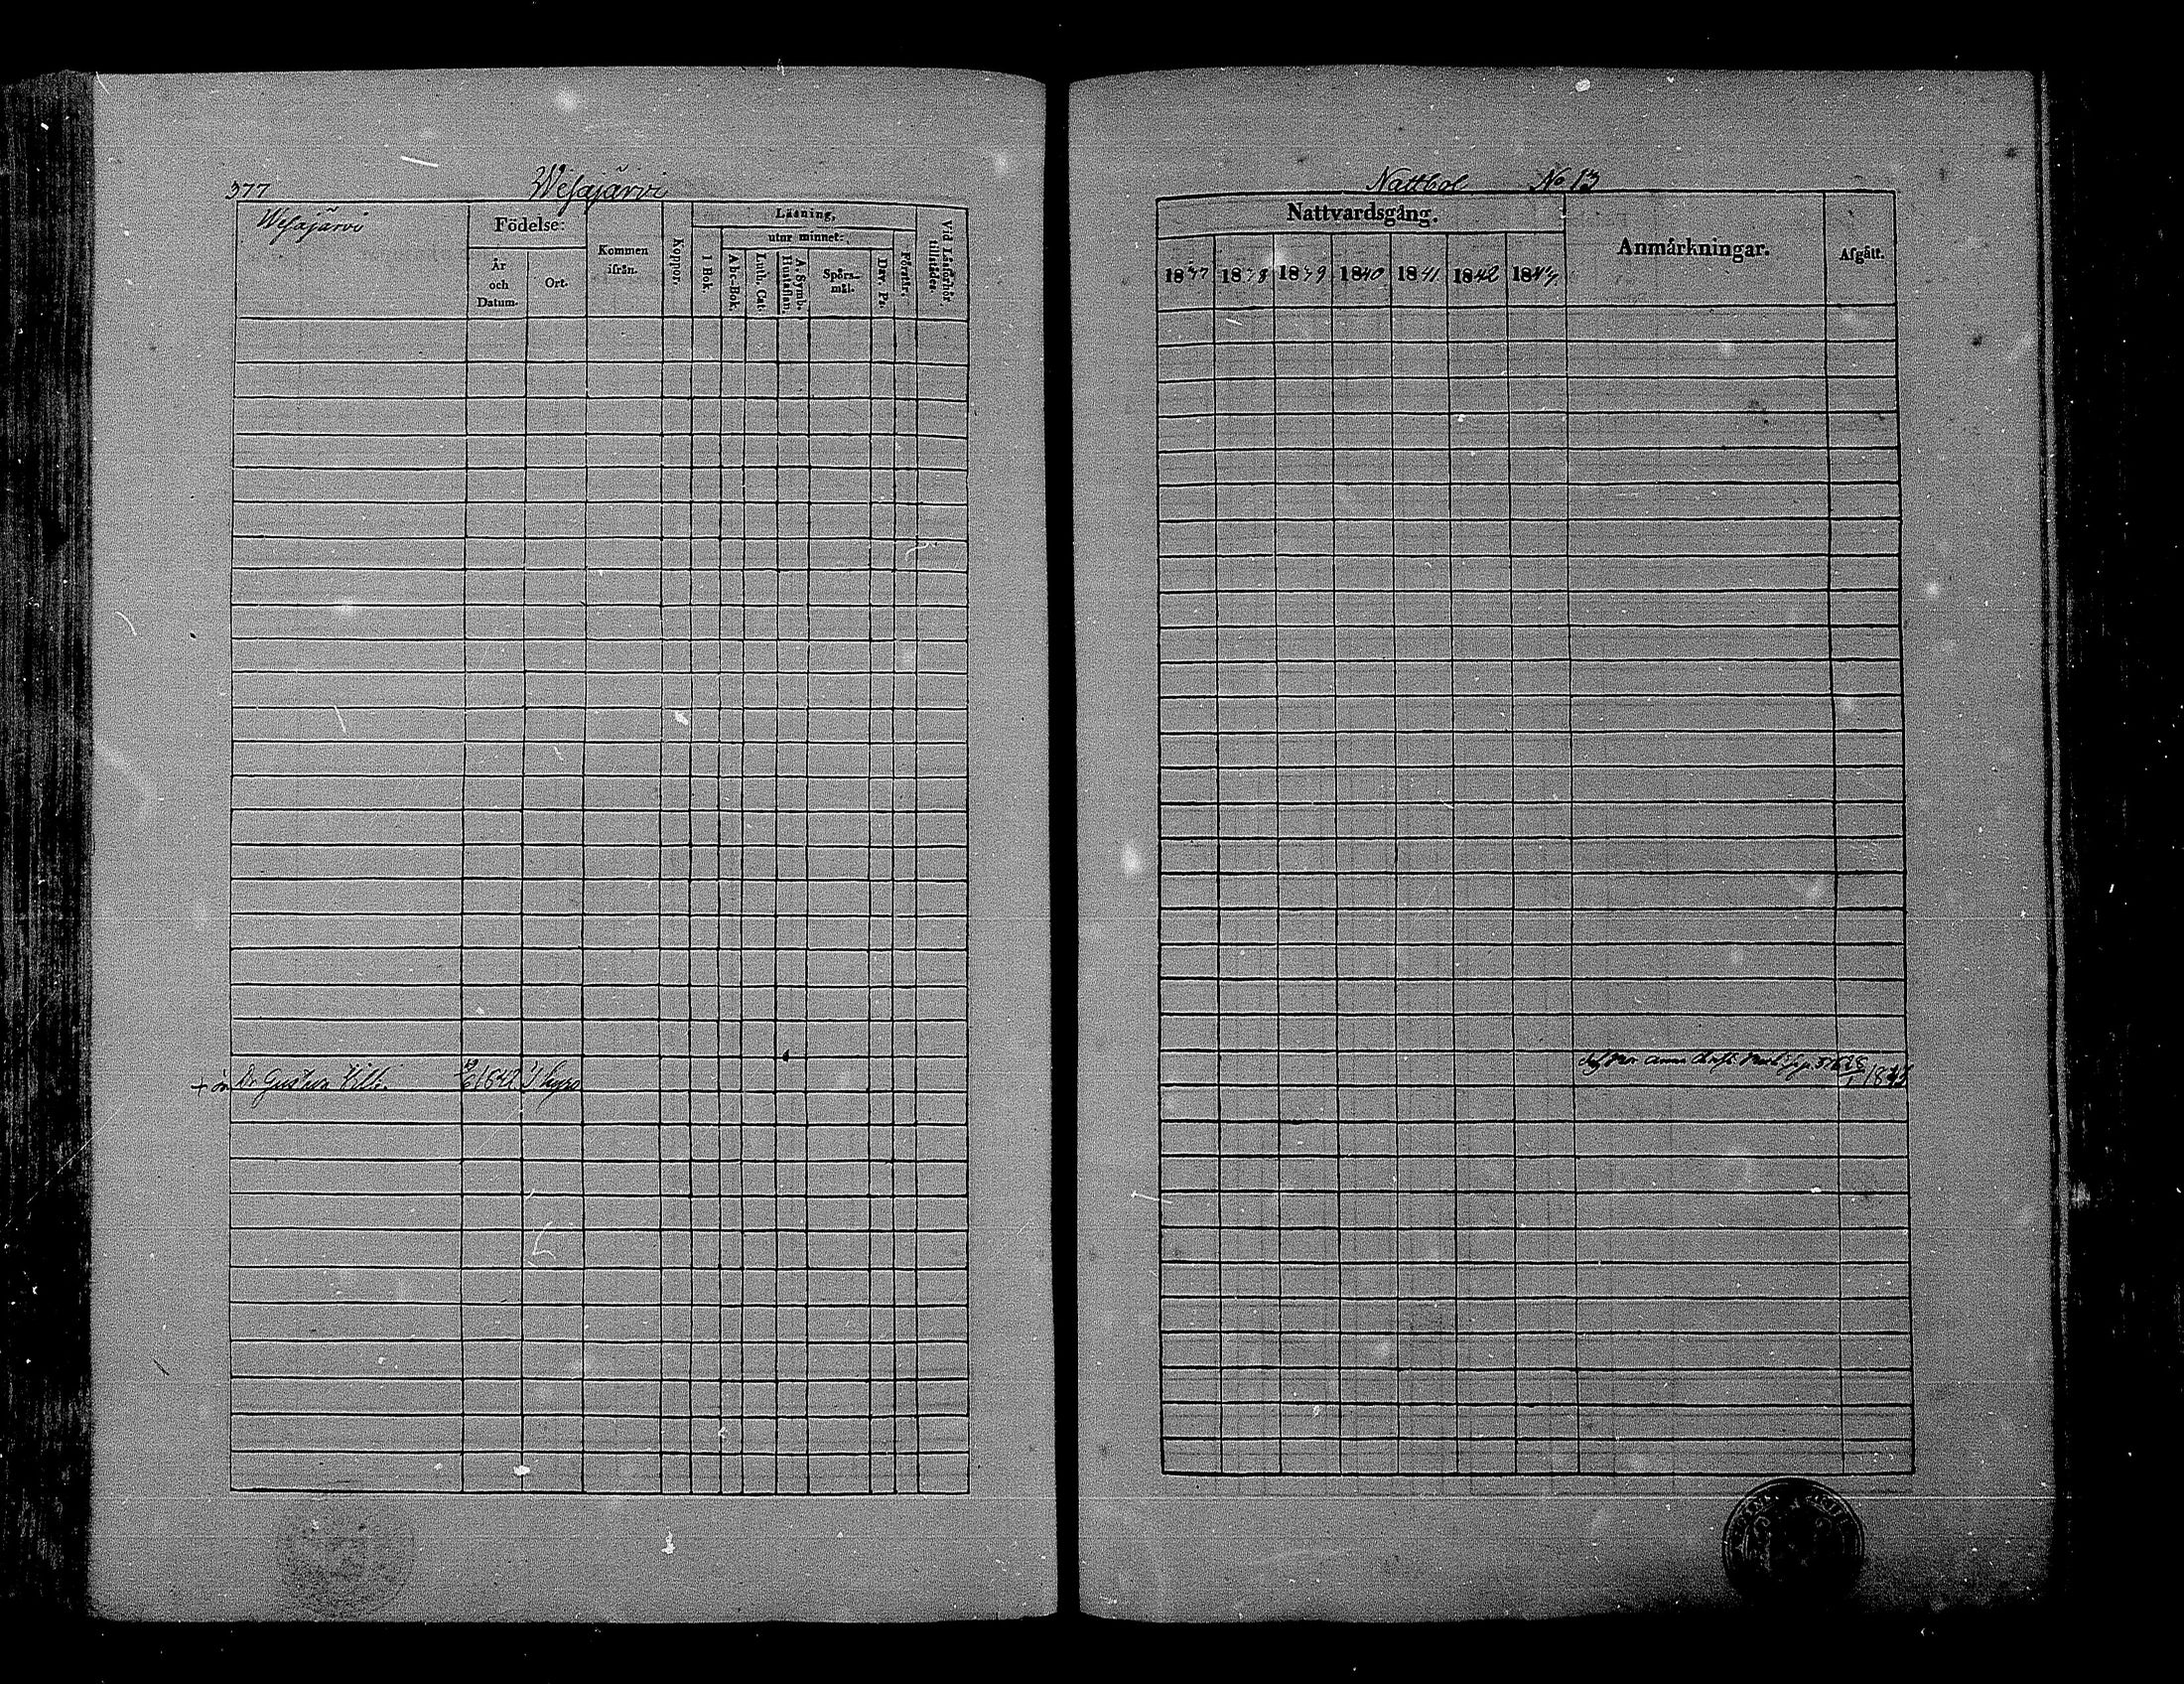 377 Wesajärvi
Wesajärvi
Födelse:
År och Datum.
Ort.
Kommen ifrån.
Koppor.
Läsning,
I Bok.
utur minnet:
Abc-Bok.
Luth. Cat.
A. Symb.
Hustaflan.
Spörs-mål.
Dav. Ps.
Förstår.
Vid Läsförhör, tillstädes
Dr Gustava Wilh. 1842
Nattbol No 13
Nattvardsgång.
1837 1838 1839 1840 1841 1842 184
Anmärkningar.
Afgått.